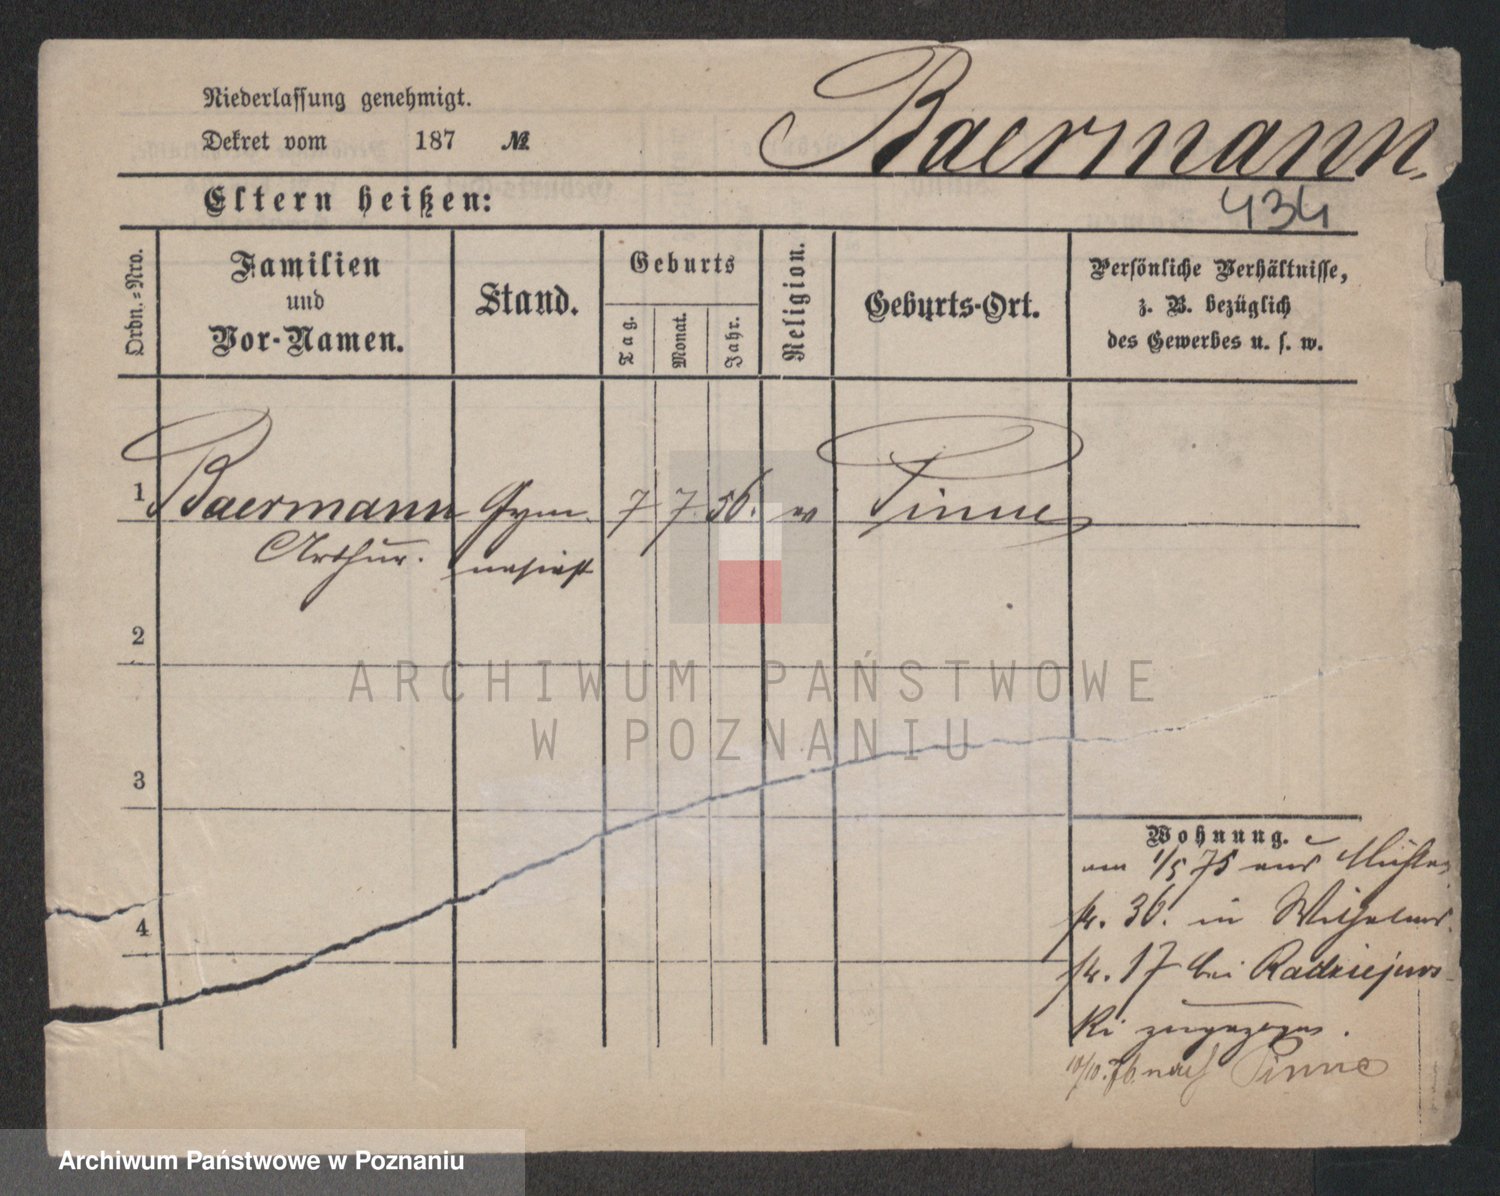 Niederlassung genehmigt.
Dekret vom 187 №
Baermann.
Eltern heißen:
434
Ordn.=Nro.
Familien
und
Vor-Namen.
Stand.
Geburts
Tag.
Monat.
Jahr.
Religion.
Geburts-Ort.
Persönliche Verhältnisse,
z. B. bezüglich
des Gewerbes u. s. w.
1 Baermann Gym- 7 7. 56. Pinne
Arthur. nasiast
2
ARCHIWUM PAŃSTWOWE
W POZNANIU
3
4
Wohnung.
am 1/5 75 aus Mühlen
str. 36. in Wilhelms
str. 17 bei Radziejews
ki zugezogen.
10/10. 76 nach Pinne
Archiwum Państwowe w Poznaniu